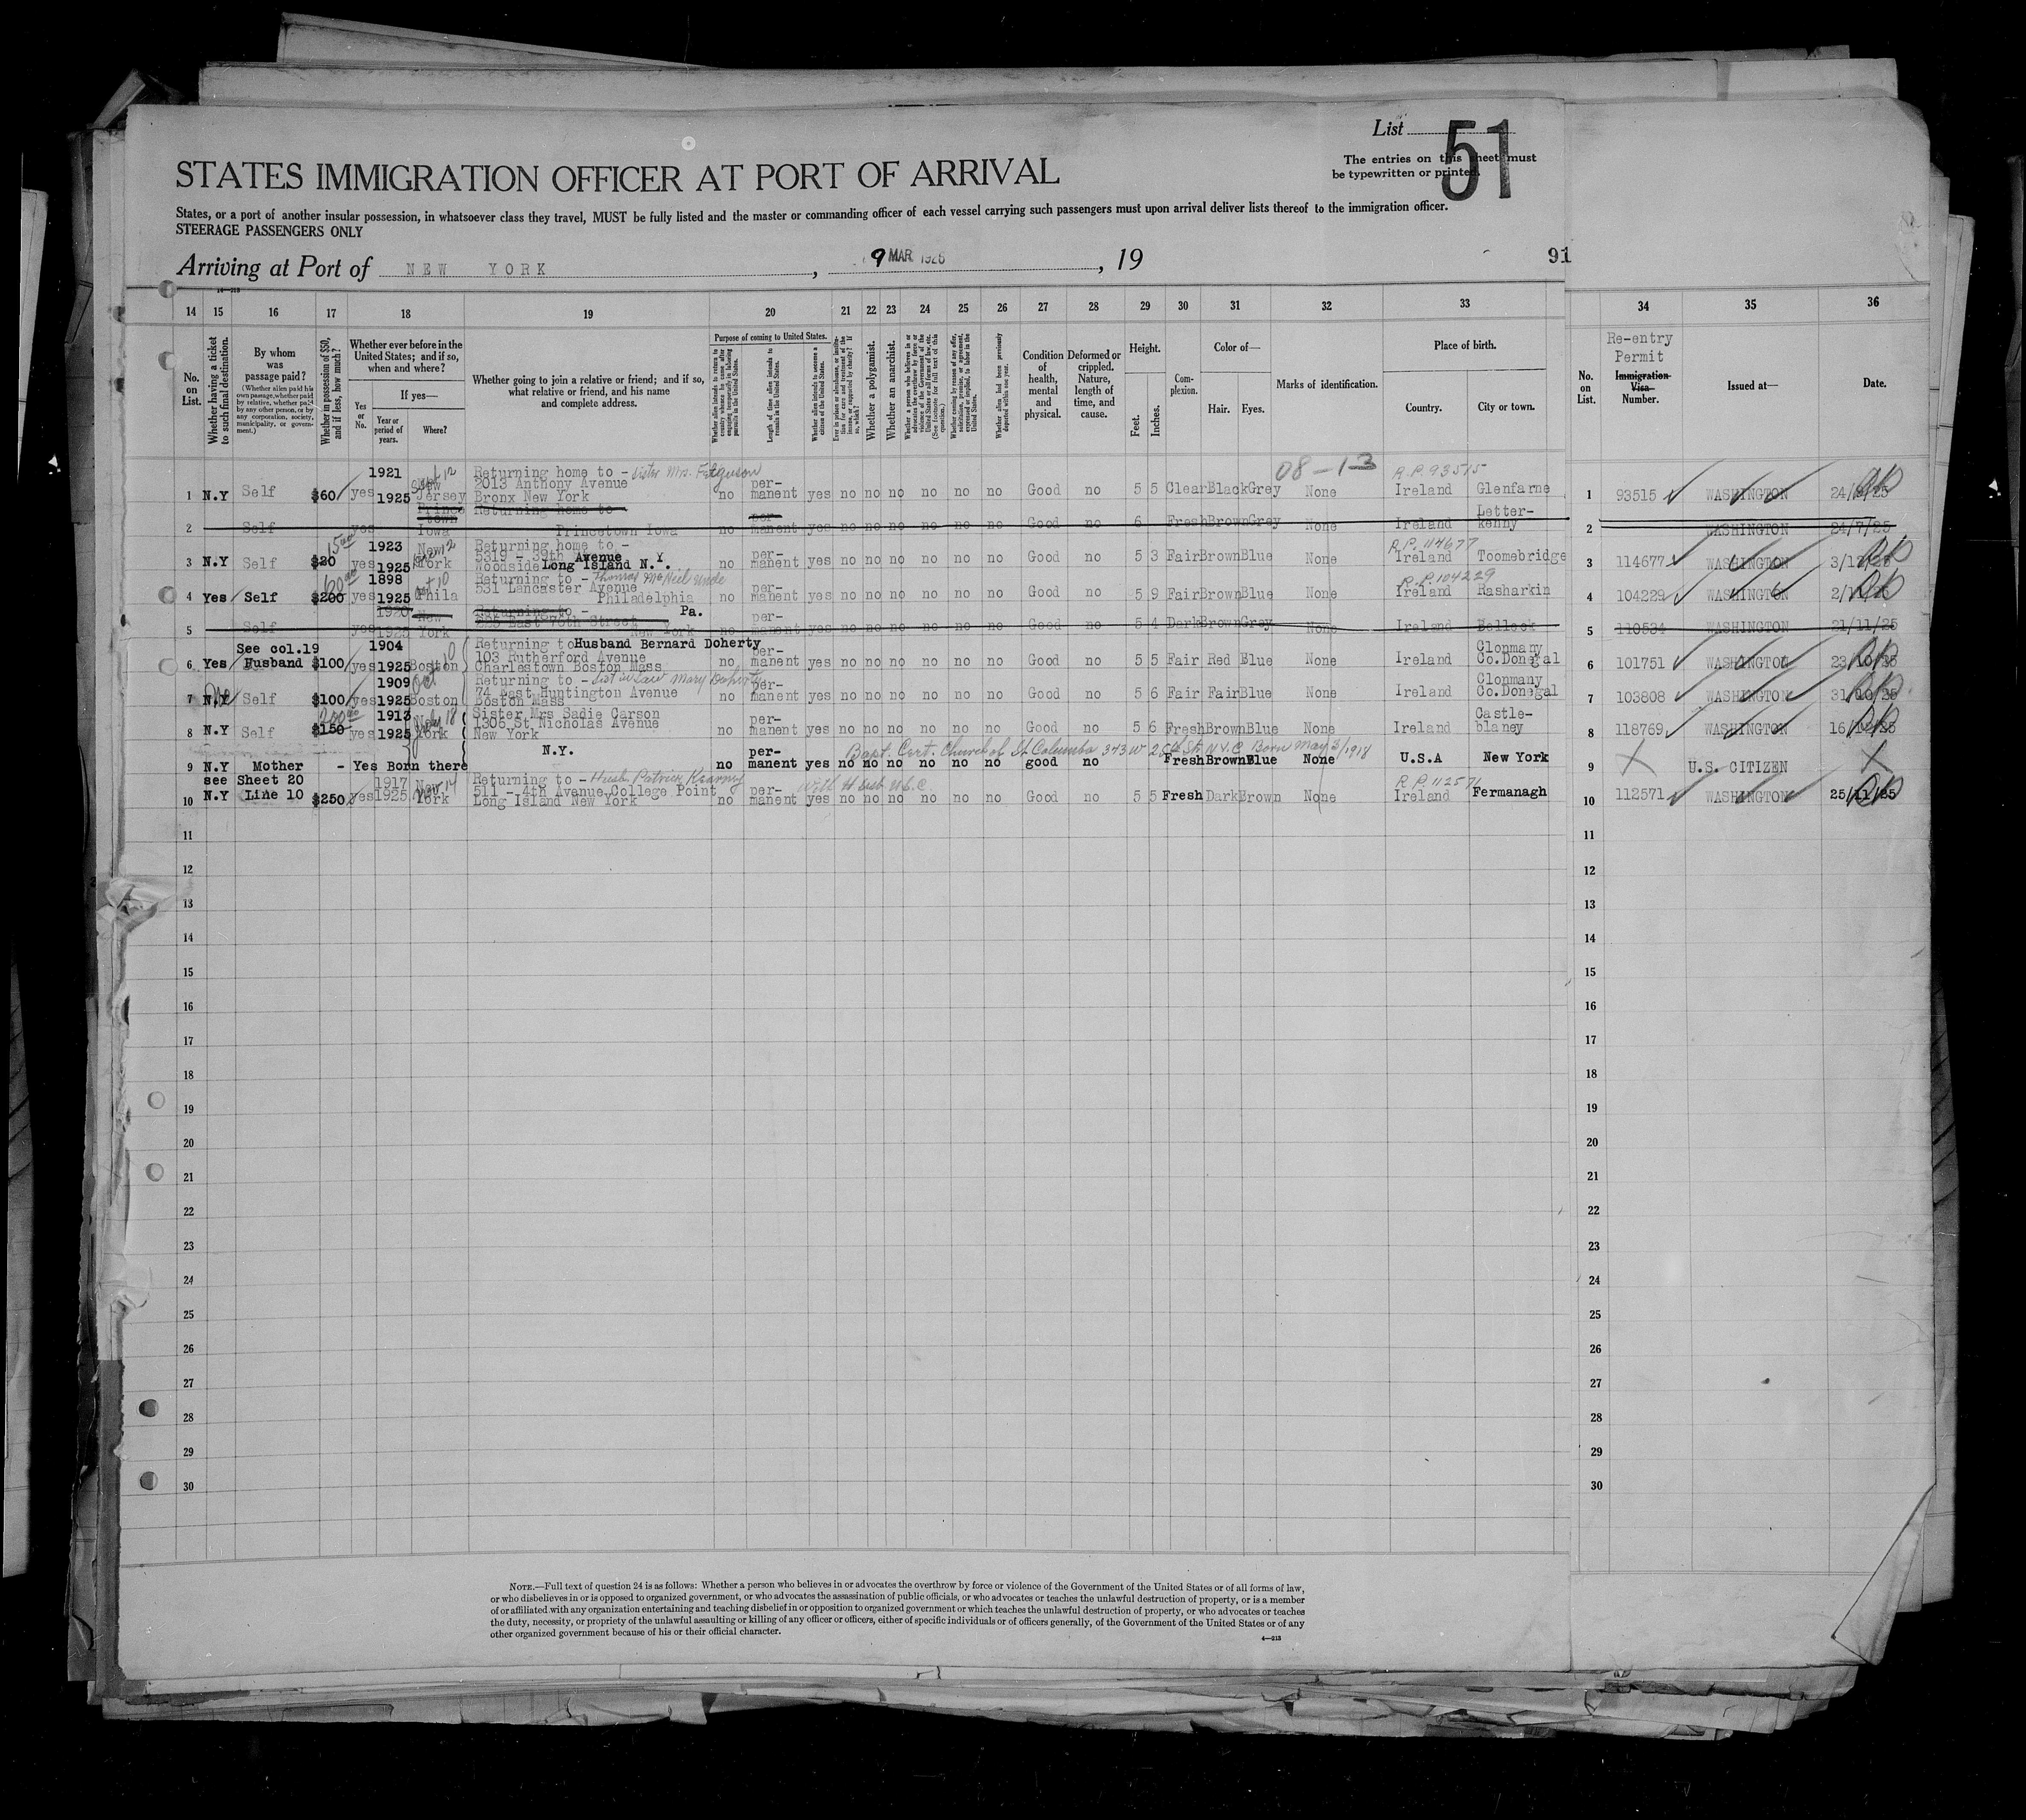 List 51
The entries on this sheet must
be typewritten or printed.
STATES IMMIGRATION OFFICER AT PORT OF ARRIVAL
States, or a port of another insular possession, in whatsoever class they travel, MUST be fully listed and the master or commanding officer of each vessel carrying such passengers must upon arrival deliver lists thereof to the immigration officer.
STEERAGE PASSENGERS ONLY
Arriving at Port of NEW YORK, 9 MAR 1926, 19
91
14 15 16 17 18 19 20 21 22 23 24 25 26 27 28 29 30 31 32 33 34 35 36
No. on List.
Whether having a ticket to such final destination.
By whom was passage paid?
(Whether alien paid his own passage, whether paid by relative, whether paid by any other person, or by any corporation, society, municipality, or government.)
Whether in possession of $50, and if less, how much?
Whether ever before in the United States; and if so, when and where?
Yes or No.
If yes—
Year or period of years.
Where?
Whether going to join a relative or friend; and if so, what relative or friend, and his name and complete address.
Purpose of coming to United States.
Whether alien intends to return to country whence he came after engaging temporarily in laboring pursuits in the United States.
Length of time alien intends to remain in the United States.
Whether alien intends to become a citizen of the United States.
Whether a polygamist.
Whether an anarchist.
Condition of health, mental and physical.
Deformed or crippled. Nature, length of time, and cause.
Height.
Feet. Inches.
Complexion.
Color of—
Hair. Eyes.
Marks of identification.
Place of birth.
Country. City or town.
No. on List.
Re-entry Permit
Immigration Visa Number.
Issued at—
Date.
08-13
1 N.Y Self $60 yes 1921 1925 New Jersey Returning home to - Sister Mrs. Ferguson 2013 Anthony Avenue Bronx New York no permanent yes no no no no no no Good no 5 5 Clear Black Grey None R.P. 93515 Ireland Glenfarne 1 93515 WASHINGTON
2 Self yes Princetown Iowa Returning home to - Princetown Iowa no permanent yes no no no no no no Good no 6 Fresh Brown Grey None Ireland Letterkenny 2 WASHINGTON 24/7/25
3 N.Y Self 15 $20 yes 1923 1925 New York Returning home to - 5319 - 39th Avenue Woodside Long Island N.Y. no permanent yes no no no no no no Good no 5 3 Fair Brown Blue None R.P. 114677 Ireland Toomebridge 3 114677 WASHINGTON
4 Yes Self $200 yes 1898 1925 Oct 10 Phila Returning to - Thomas McNiel uncle 531 Lancaster Avenue Philadelphia Pa. no permanent yes no no no no no no Good no 5 9 Fair Brown Blue None R.P. 104229 Ireland Rasharkin 4 104229 WASHINGTON
5 Self yes 1920 1925 New York Returning to - East 70th Street New York no permanent yes no no no no no no Good no 5 4 Dark Brown Grey None Ireland Belleek 5 110534 WASHINGTON 21/11/25
6 Yes See col.19 Husband $100 yes 1904 1925 Boston Returning to Husband Bernard Doherty 103 Rutherford Avenue Charlestown Boston Mass no permanent yes no no no no no no Good no 5 5 Fair Red Blue None Ireland Clonmany Co.Donegal 6 101751 WASHINGTON 23/10/25
7 N.Y Self $100 yes 1909 1925 Oct Boston Returning to - Sist in law Mary Doherty 74 East Huntington Avenue Boston Mass no permanent yes no no no no no no Good no 5 6 Fair Fair Blue None Ireland Clonmany Co.Donegal 7 103808 WASHINGTON 31/10/25
8 N.Y Self 200 $150 yes 1913 1925 York Sister Mrs Sadie Carson 1306 St Nicholas Avenue New York N.Y. no permanent yes no no no no no no Good no 5 6 Fresh Brown Blue None Ireland Castleblaney 8 118769 WASHINGTON 16/12/25
Bapt. Cert. Church of St Columba 343 W 25th St. N.Y.C Born May 3/1918
9 N.Y Mother - Yes Born there no permanent yes no no no no no no good no Fresh Brown Blue None U.S.A New York 9 X U.S. CITIZEN X
with H Husb. U.S.C.
10 N.Y see Sheet 20 Line 10 $250 yes 1917 1925 Nov 14 New York Returning to - Husb. Patrick Kearney 511 - 4th Avenue College Point Long Island New York no permanent yes no no no no no no Good no 5 5 Fresh Dark Brown None R.P. 112571 Ireland Fermanagh 10 112571 WASHINGTON 25/11/25
11 11
12 12
13 13
14 14
15 15
16 16
17 17
18 18
19 19
20 20
21 21
22 22
23 23
24 24
25 25
26 26
27 27
28 28
29 29
30 30
NOTE.—Full text of question 24 is as follows: Whether a person who believes in or advocates the overthrow by force or violence of the Government of the United States or of all forms of law,
or who disbelieves in or is opposed to organized government, or who advocates the assassination of public officials, or who advocates or teaches the unlawful destruction of property, or is a member
of or affiliated with any organization entertaining and teaching disbelief in or opposition to organized government or which teaches the unlawful destruction of property, or who advocates or teaches
the duty, necessity, or propriety of the unlawful assaulting or killing of any officer or officers, either of specific individuals or of officers generally, of the Government of the United States or of any
other organized government because of his or their official character.
4—213